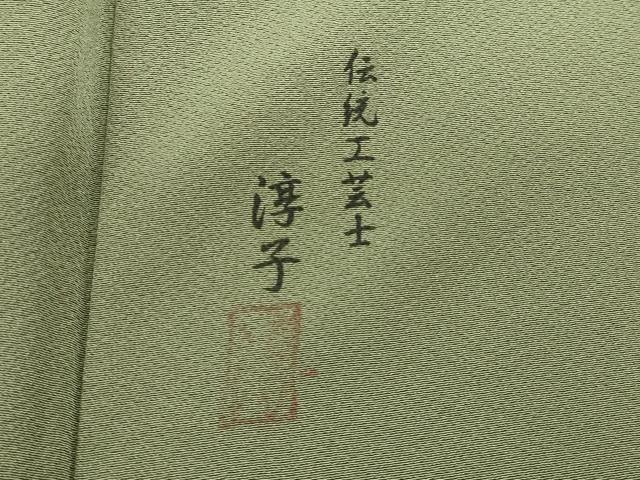 伝統工芸士
淳子